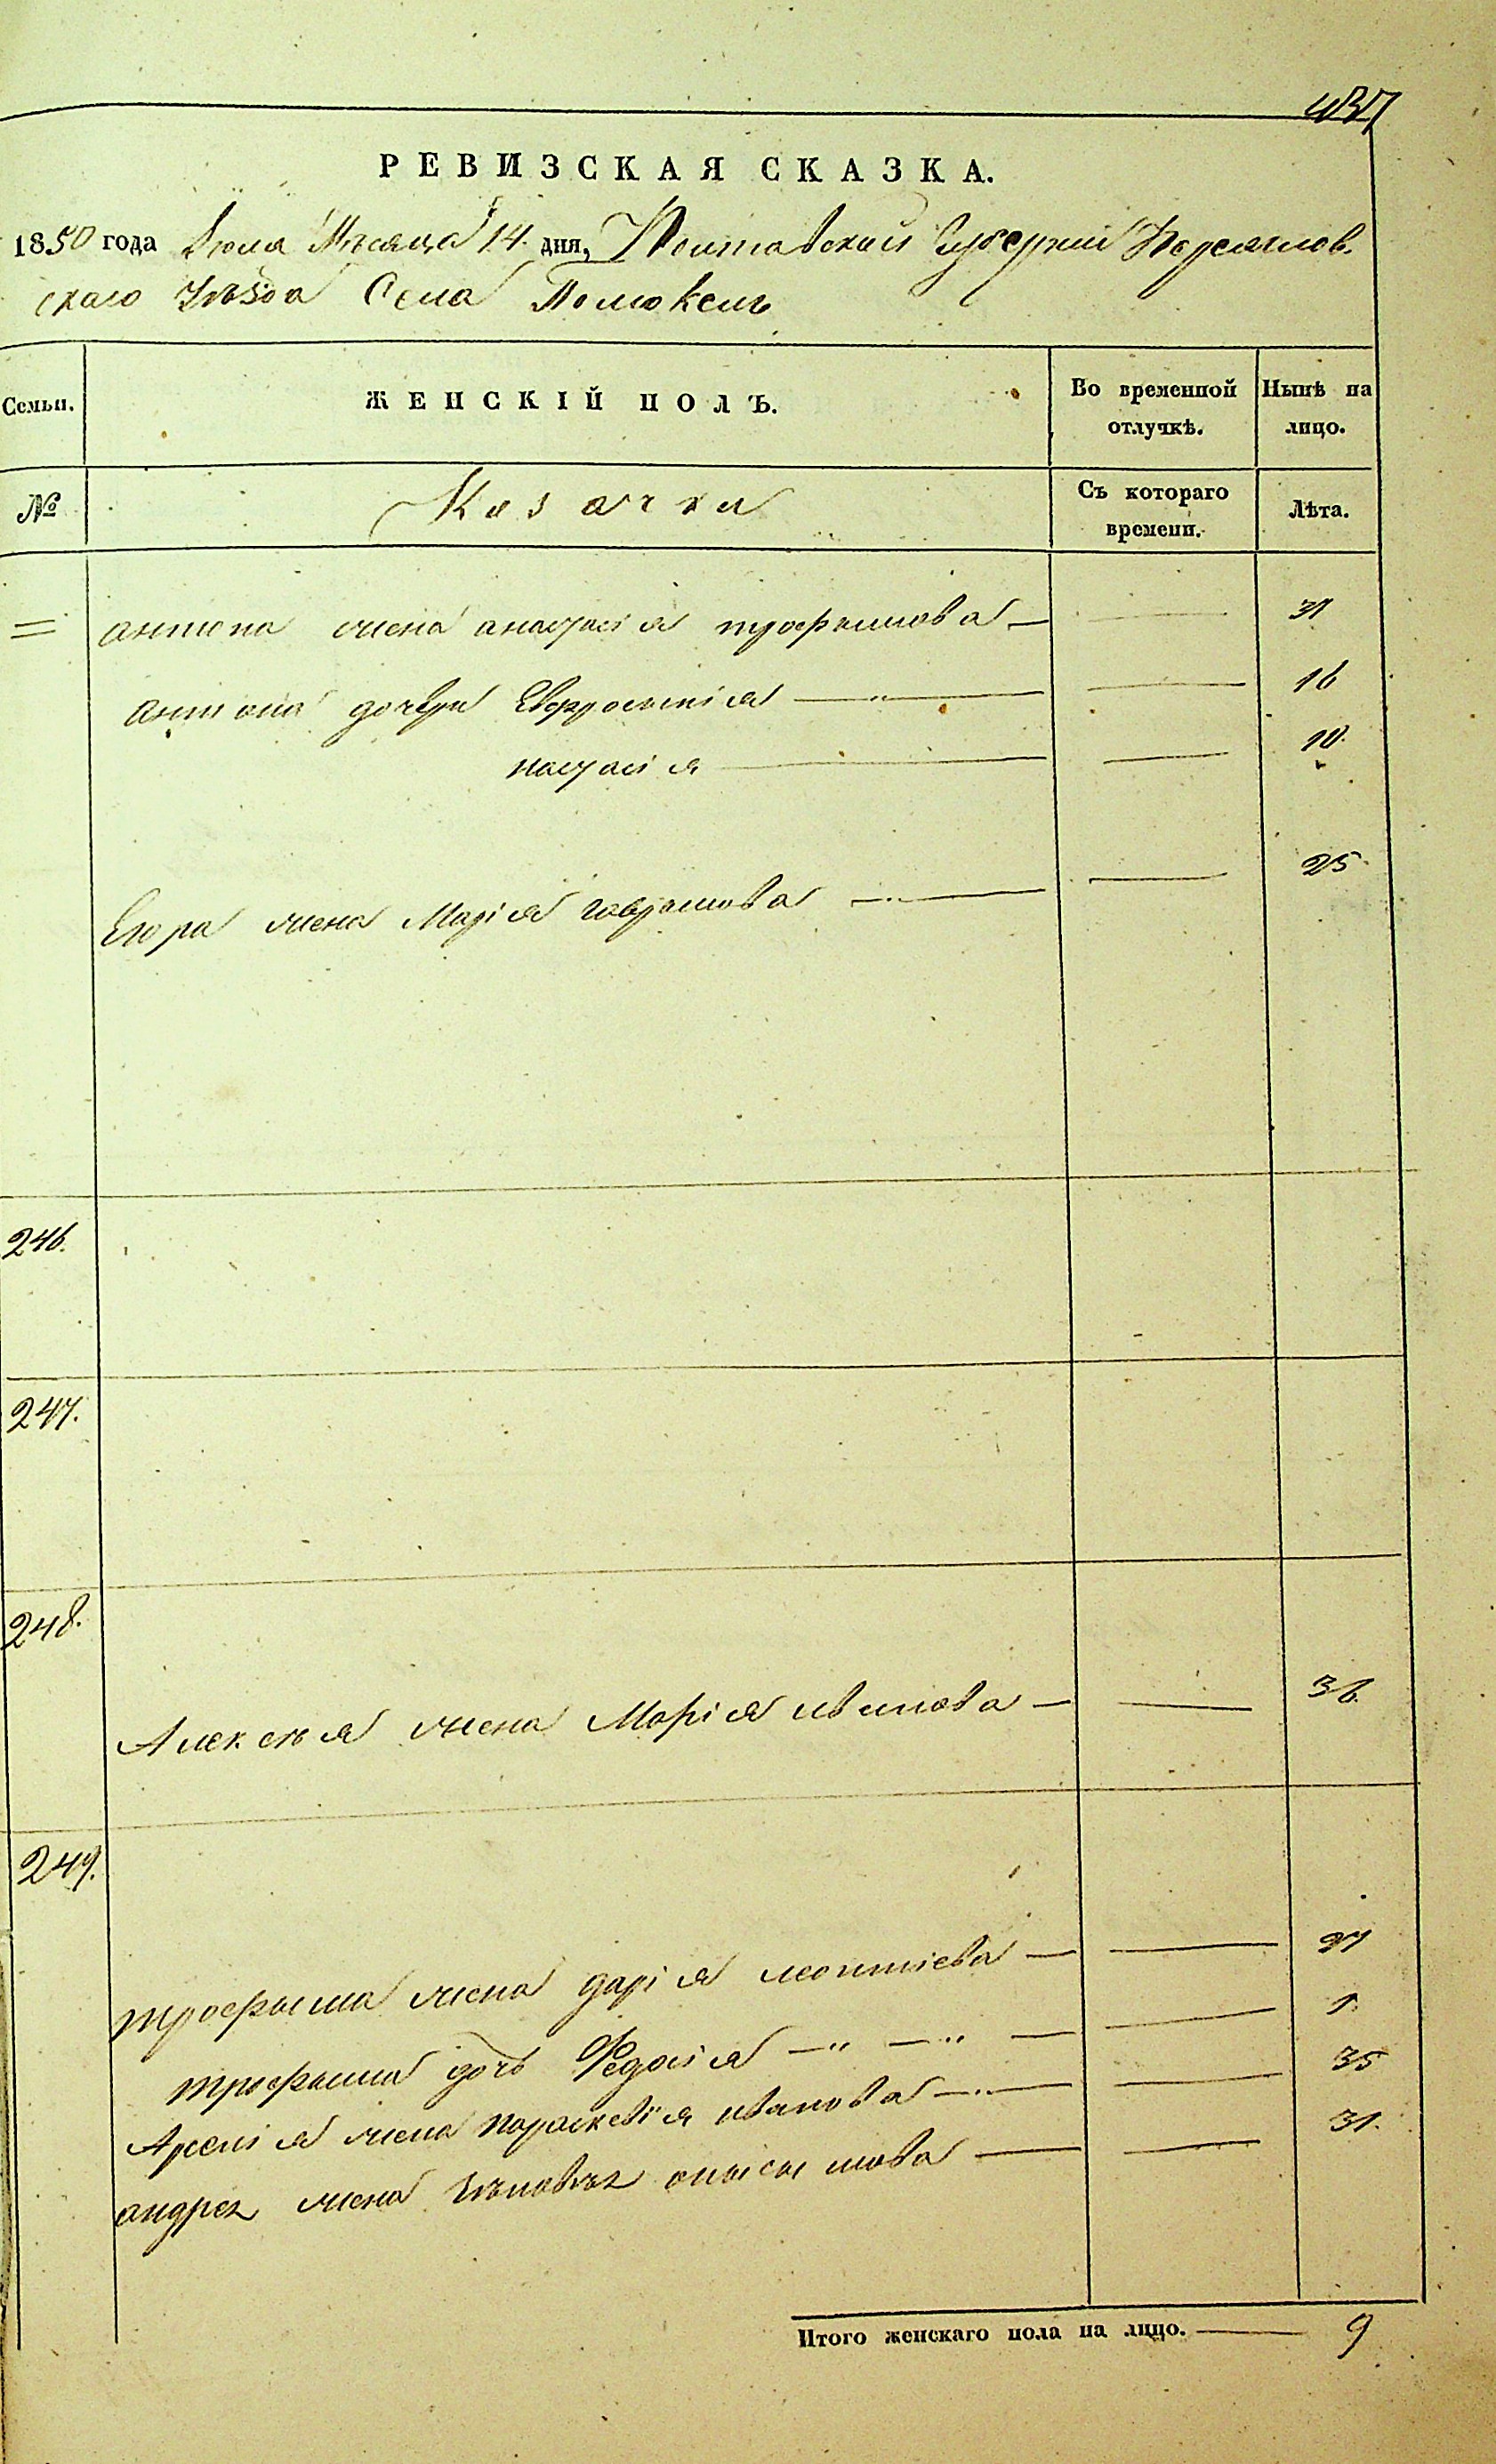 437
РЕВИЗСКАЯ СКАЗКА.
1850 года Июля Месяца 14 дня, Полтавской Губернии Переяслов-
скаго Уезда Села Помоклъ
Семьи. ЖЕНСКІЙ ПОЛЪ. Во временной отлучкѣ. Нынѣ на лицо.
№ Козачки Съ котораго времени. Лѣта.
= антона жена анастасія трофимова — 31
антона дочери Евфросинія — 16
настасія — 10.
Егора жена Марія гаврилова — 25
246.
247.
248.
Алексѣя жена Марія иванова — 36.
249.
трофима жена дарія леонтіева — 27
трофима дочь Федосія — 1.
Арсенія жена параскевія иванова — 35
андрея жена анисимова — 31.
Итого женскаго пола на лицо. — 9